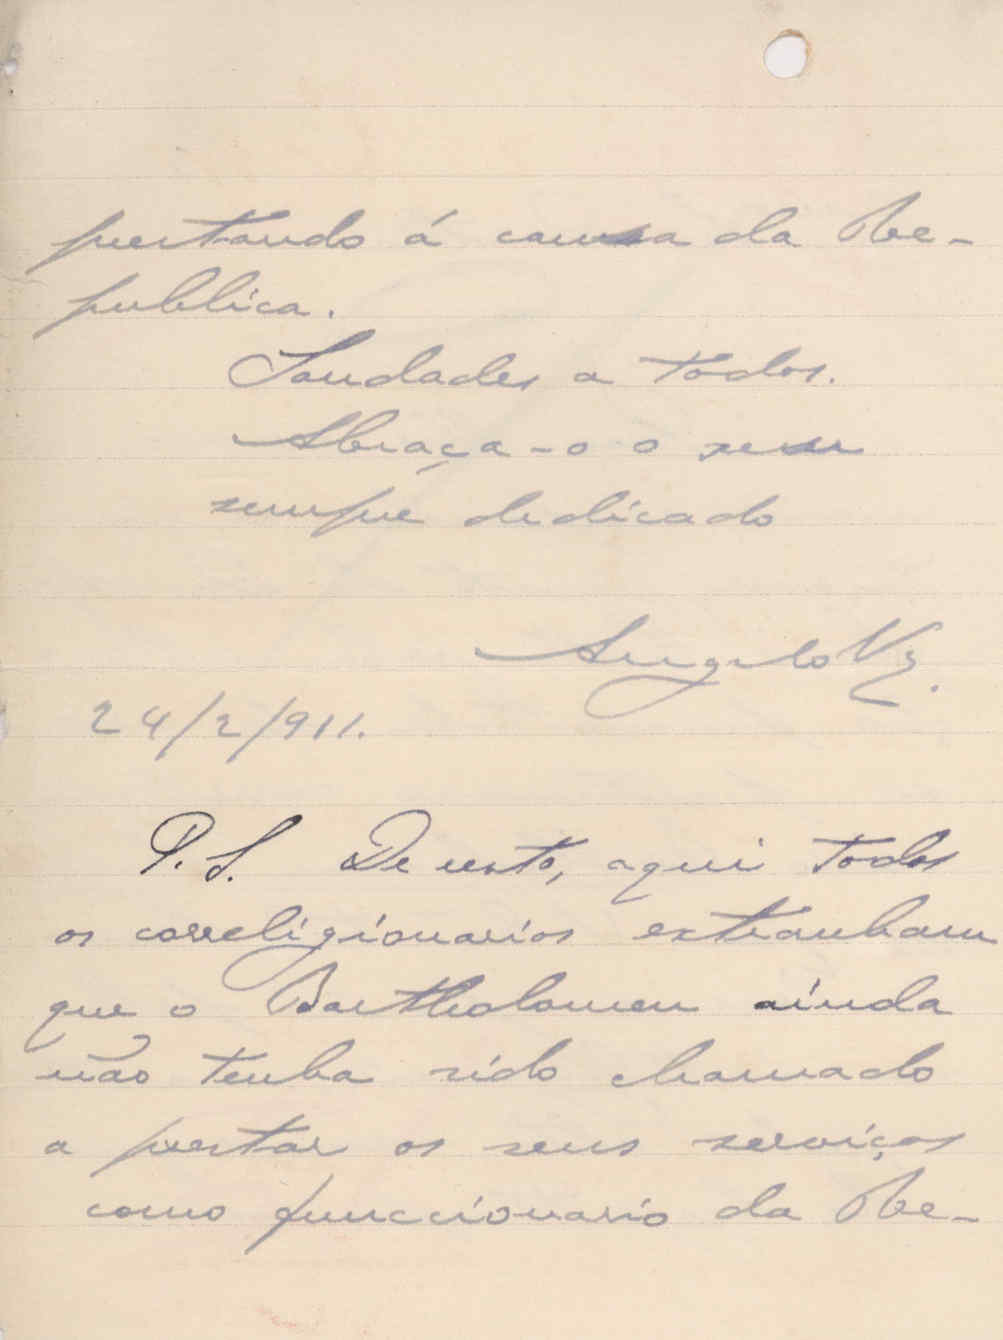 prestando á causa da Re-
publica.
Saudades a todos.
Abraça-o o seu
sempre dedicado
Angelo Vz.
24/2/911.
P. S. De resto, aqui todos
os correligionarios extranham
que o Bartholomeu ainda
não tenha sido chamado
a prestar os seus serviços
como funccionario da Re-